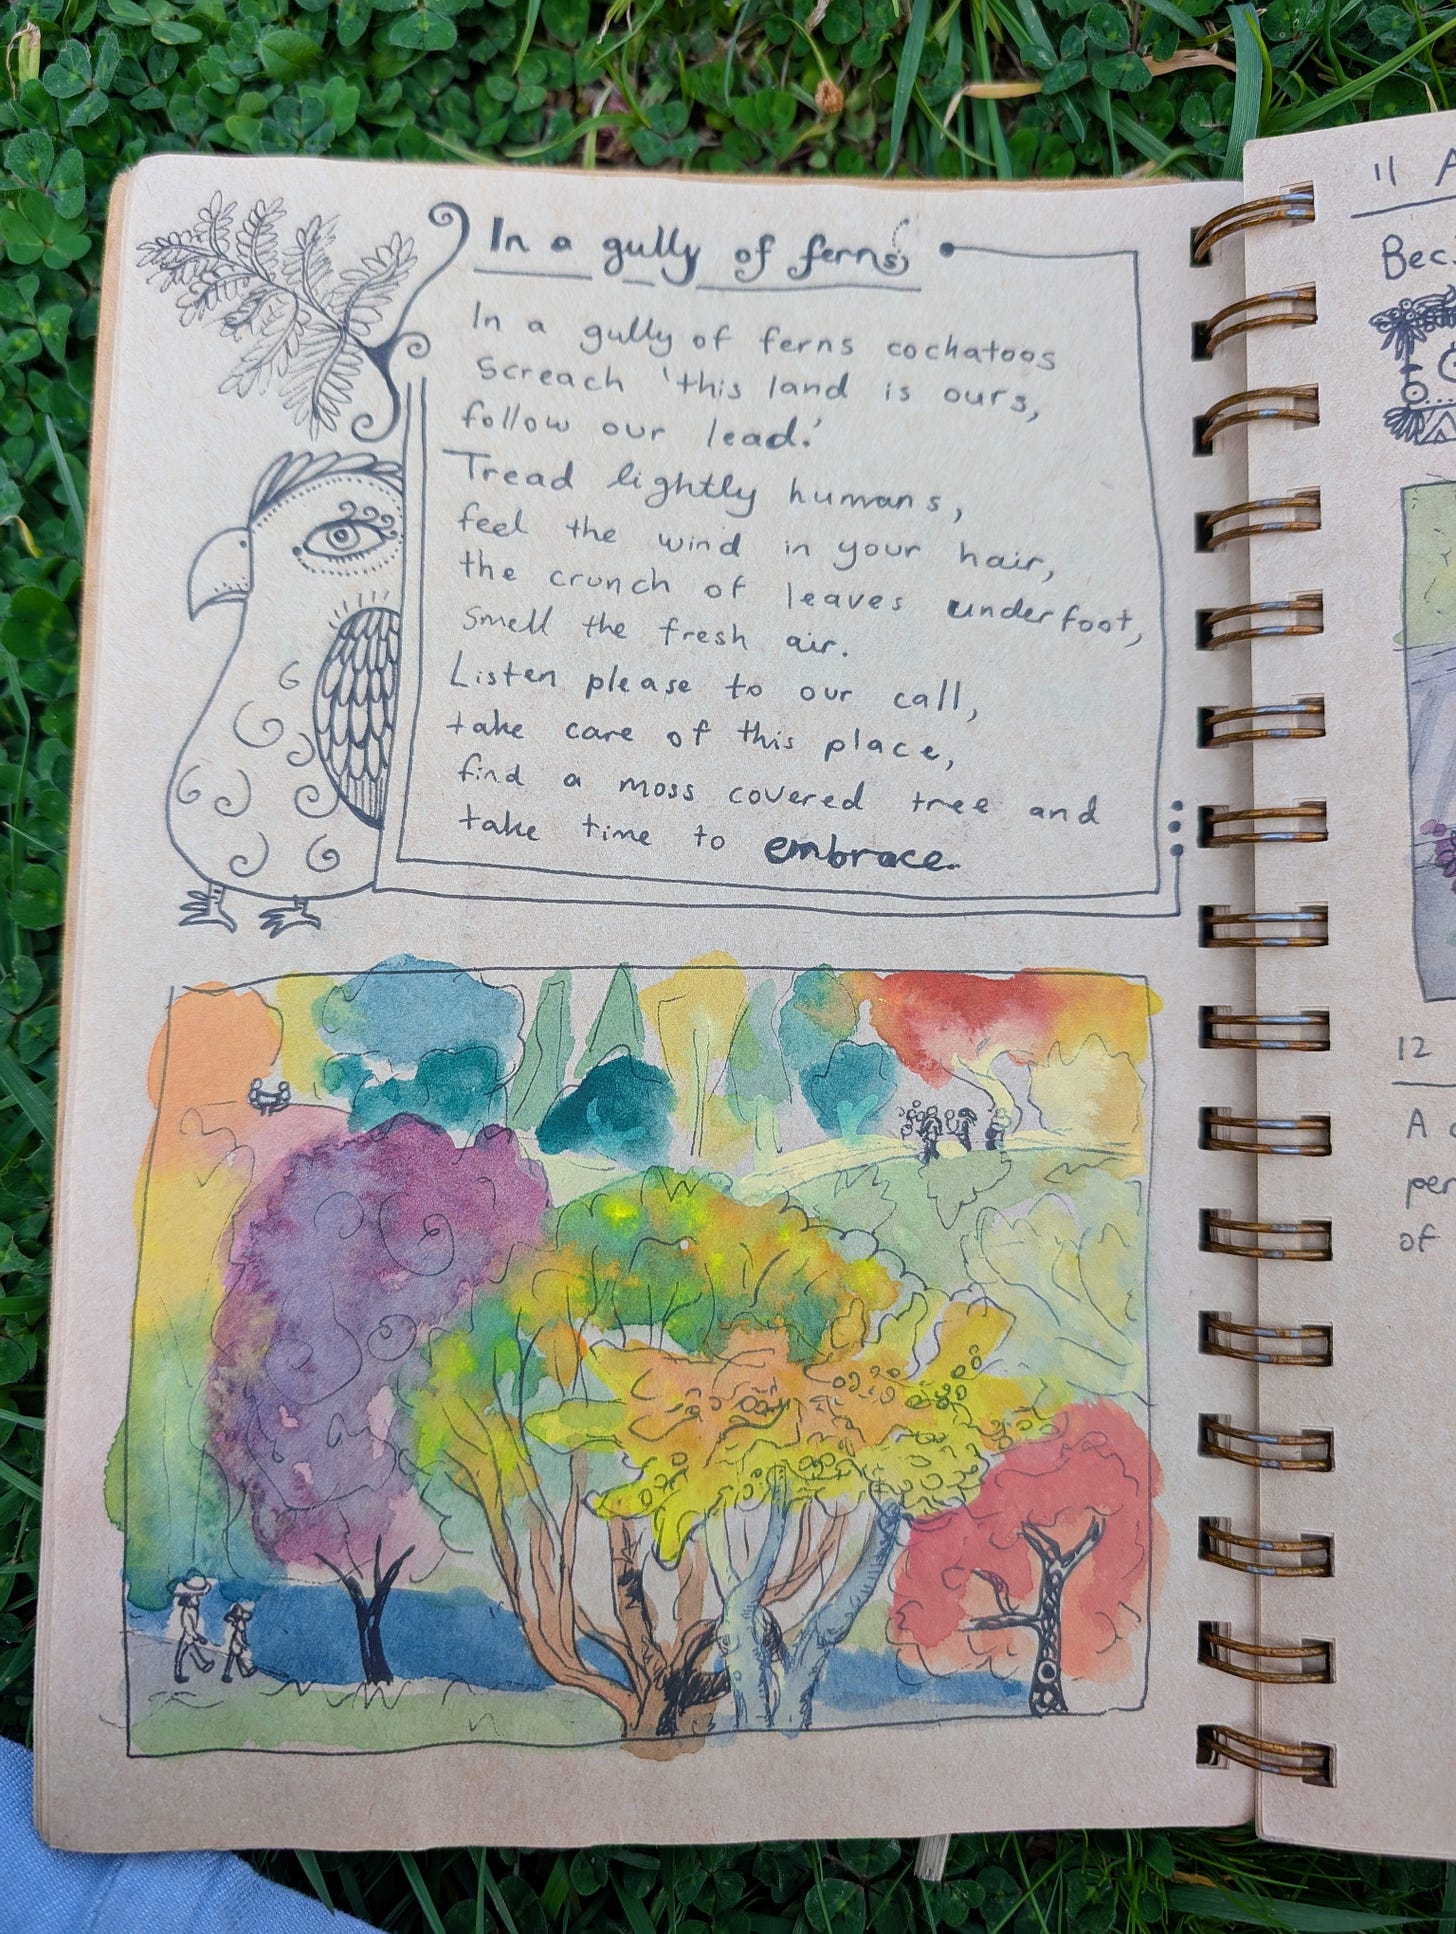 In a gully of ferns
In a gully of ferns cockatoos
Screach 'this land is ours,
follow our lead.'
Tread lightly humans,
feel the wind in your hair,
the crunch of leaves underfoot,
smell the fresh air.
Listen please to our call,
take care of this place,
find a moss covered tree and
take time to embrace.
11 A
Bec
12
A
per
of